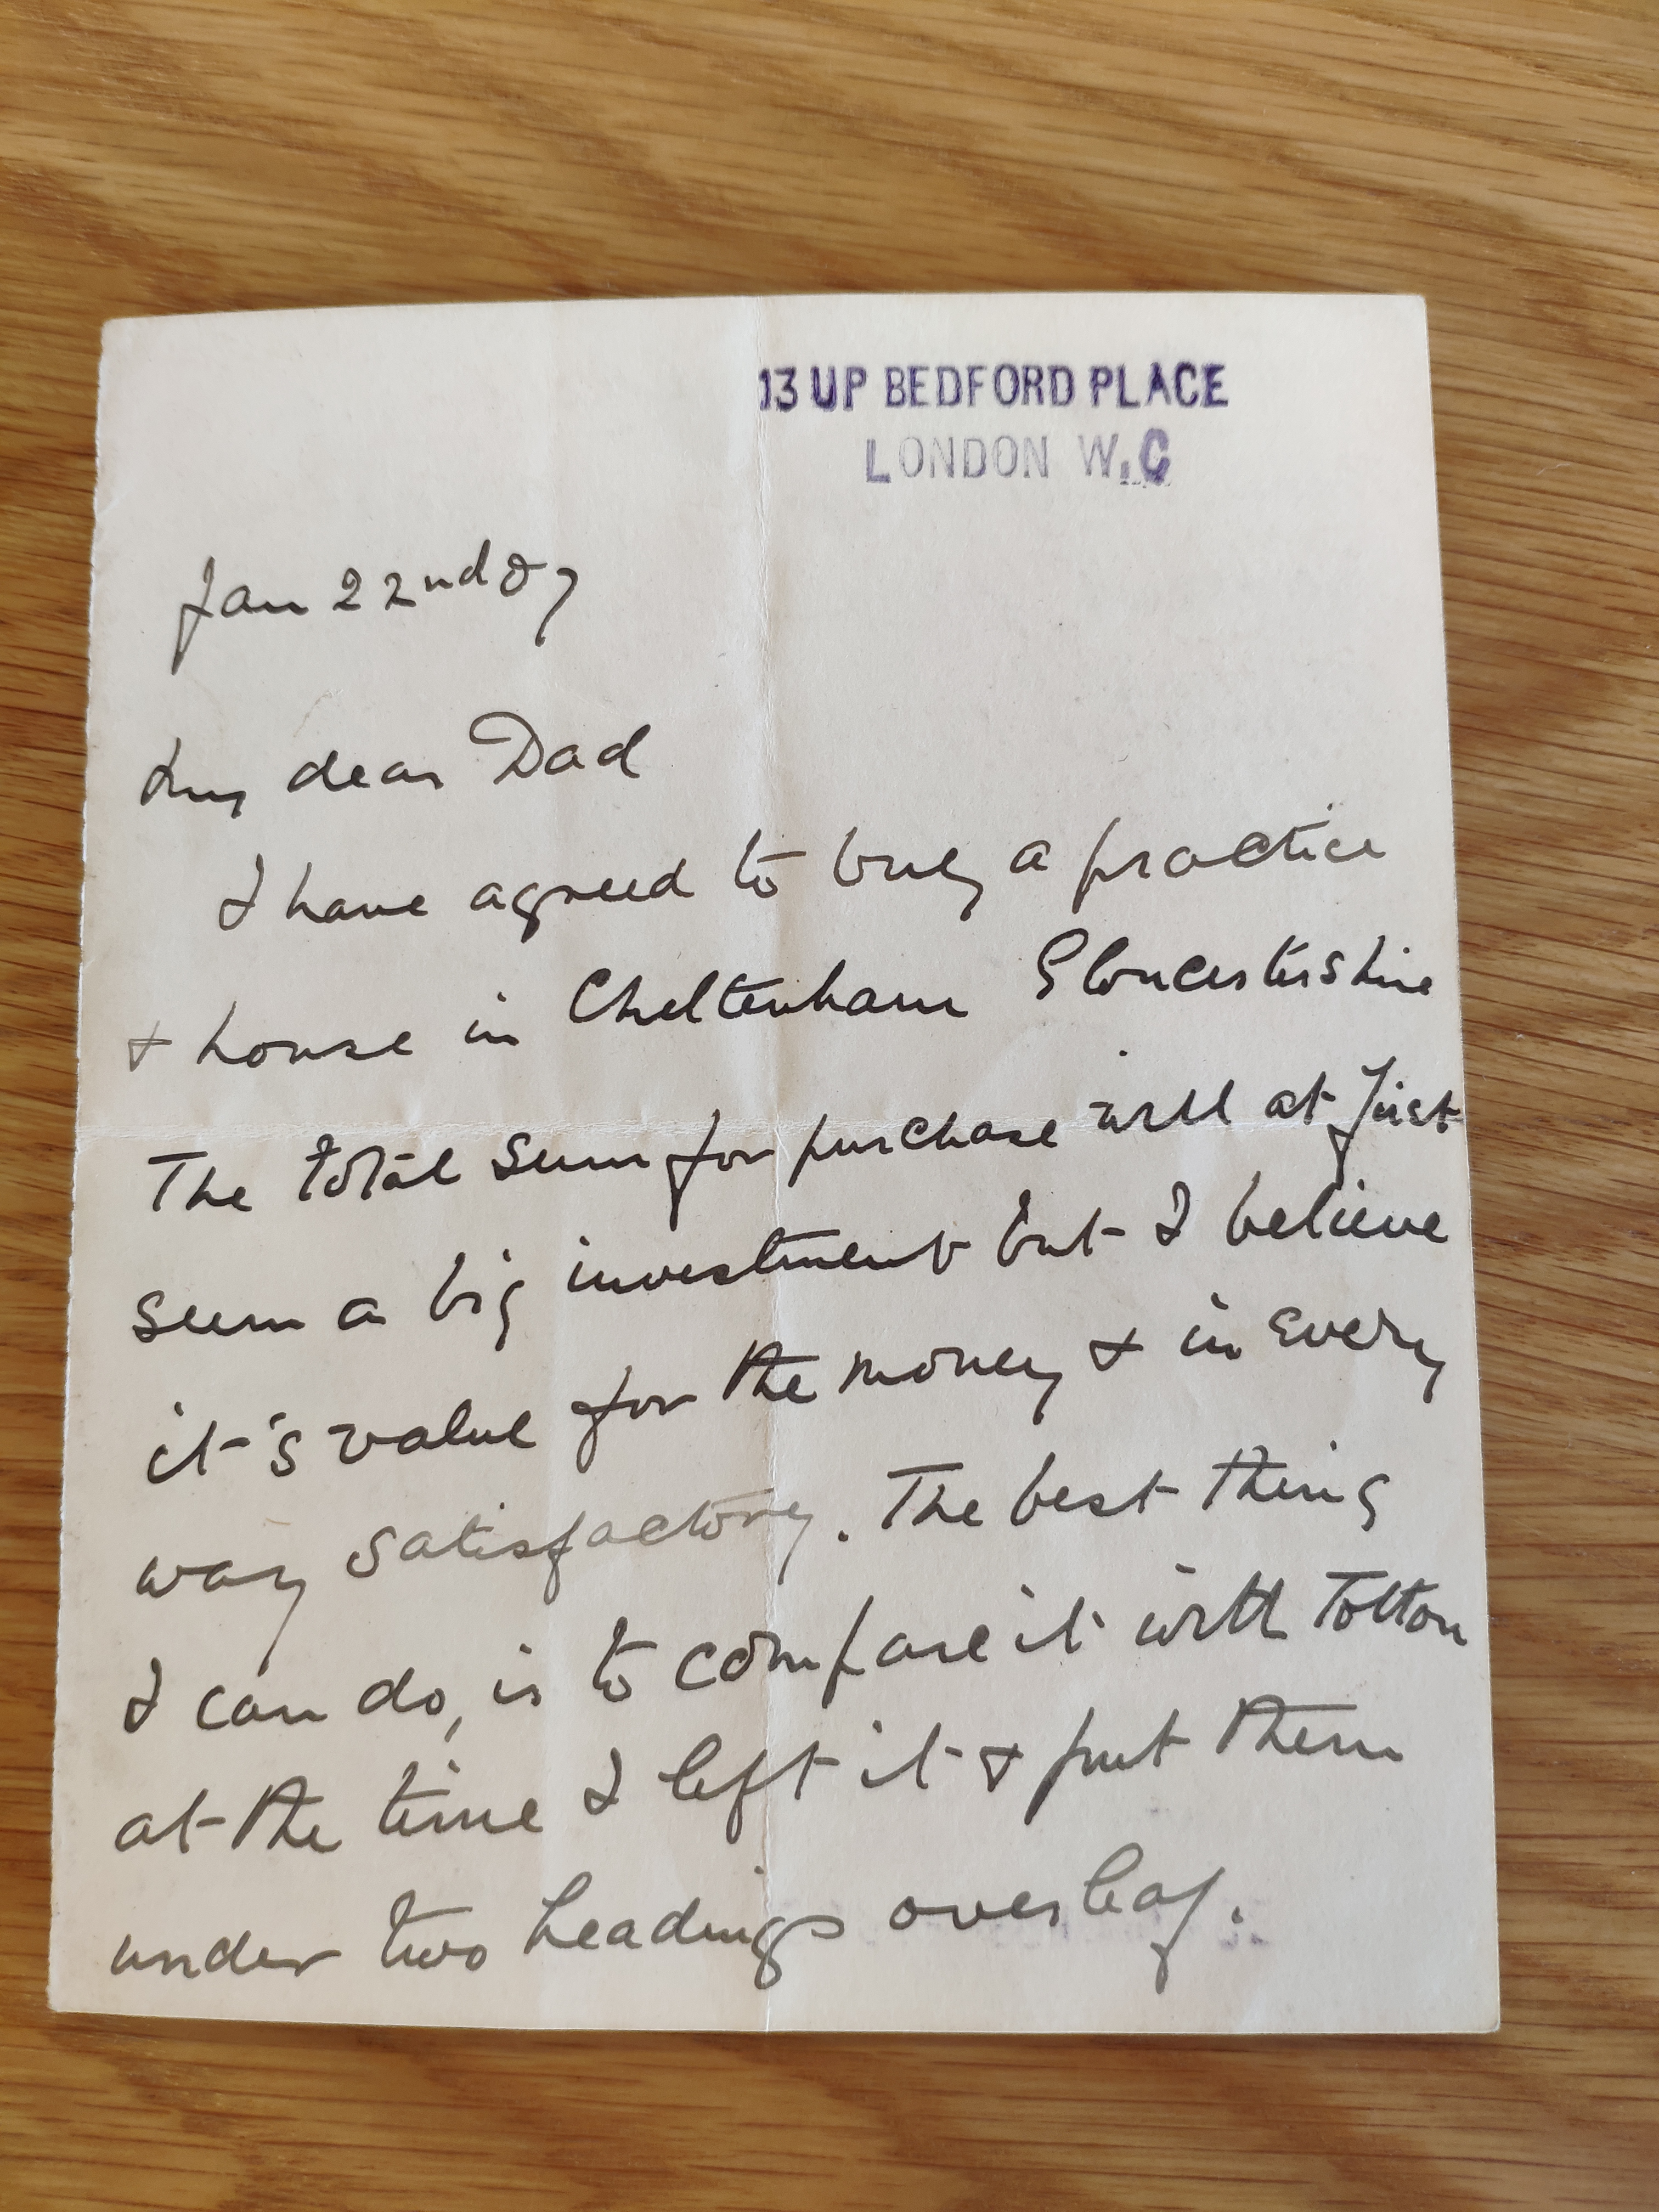 13 UP BEDFORD PLACE
LONDON W.C
Jan 22nd 07
My dear Dad
I have agreed to buy a practice
+ house in Cheltenham Gloucestershire
The total sum for purchase will at first
seem a big investment but I believe
it's value for the money + in every
way satisfactory. The best thing
I can do, is to compare it with Totton
at the time I left it + put them
under two headings overleaf.